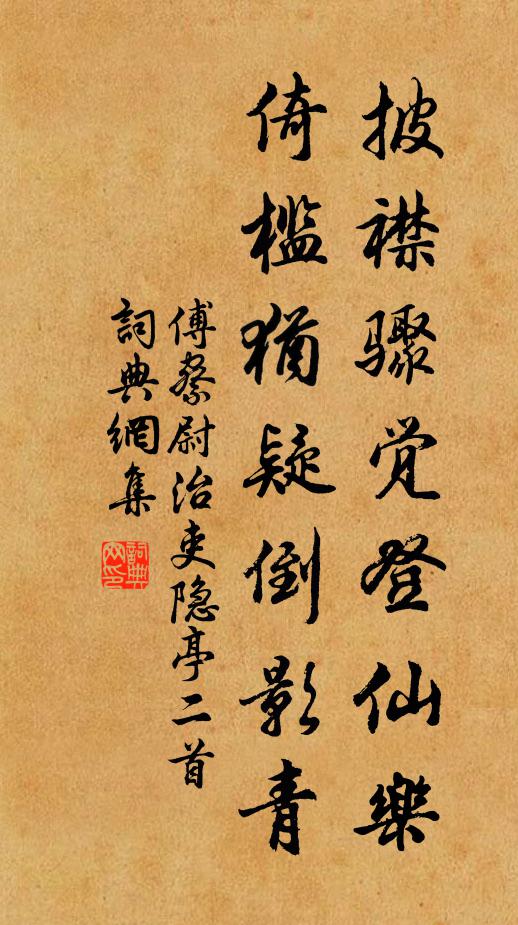 披襟骤觉登仙樂
倚檻猶疑倒影青
傅察尉治吏隐亭二首
詞典網集
詞典网印